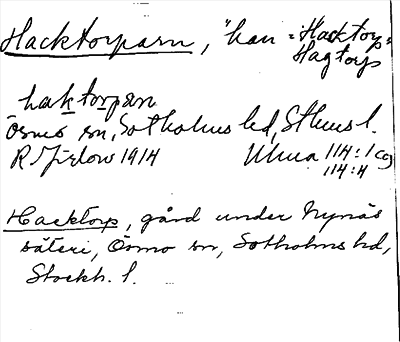 Hacktorparn, "han = Hacktorp"
Hagtorp
haktorpan
Ösmo sn, Sotholms hd, Sthms l.
R Jirlow 1914 Ulma 114:1
114:4
Hacktorp, gård under Nynäs
säteri, Ösmo sn, Sotholms hd,
Stockh. l.